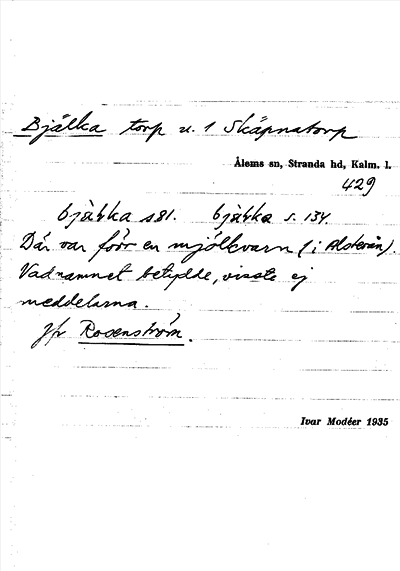 Bjälka torp u. 1 Skäpnatorp
Ålems sn, Stranda hd, Kalm. l.
429
bjàlka s81. bjàlka s. 134.
Där var förr en mjölkvarn (i Alsterån).
Vad namnet betydde, visste ej
meddelarna.
Jfr Rosenström.
Ivar Modéer 1935